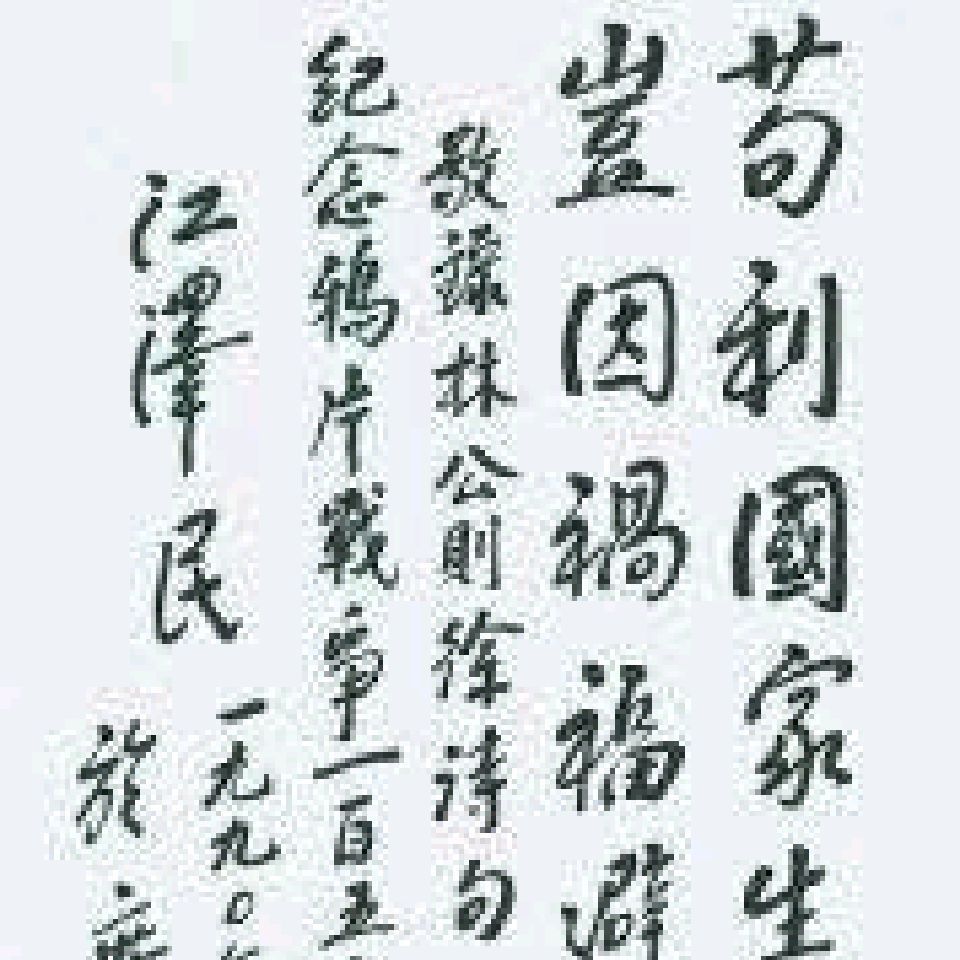 苟利國家生
豈因禍福避
敬録林公則徐詩句
紀念鴉片戰爭一百五
江澤民
一九九〇
於